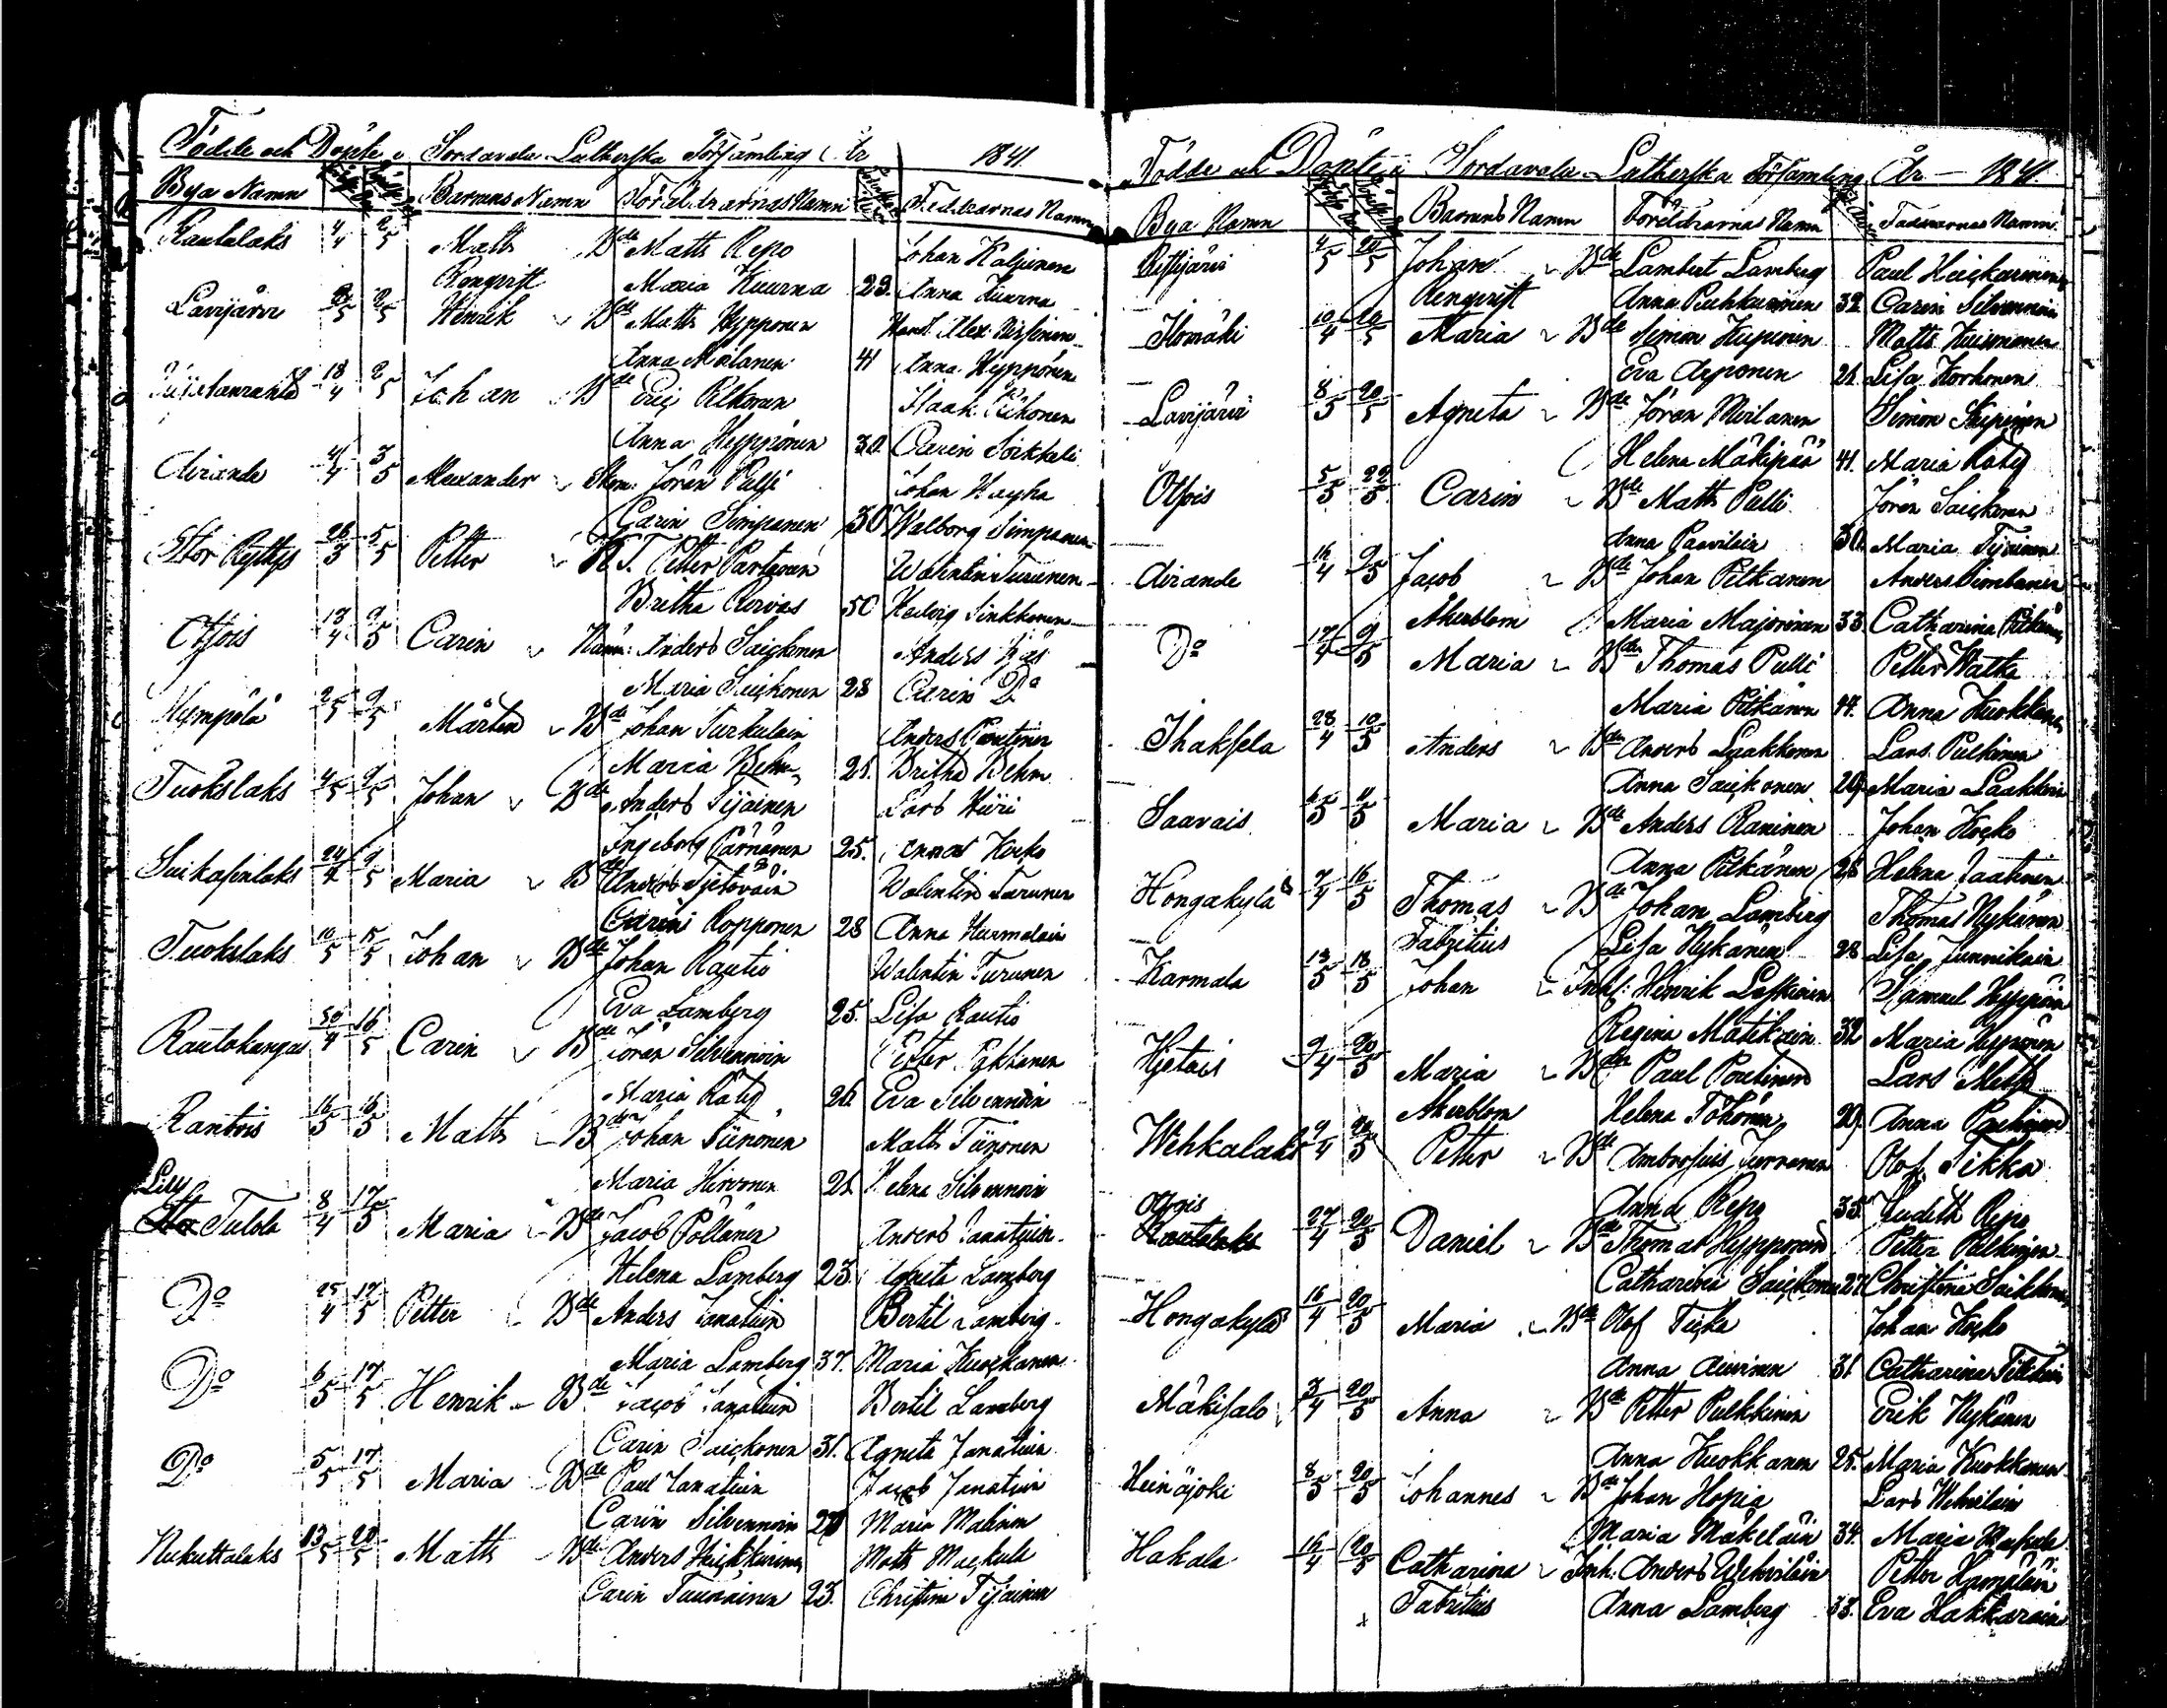 Födde och Döpte i Sordavala Lutherska Församling År 1841
Bya Namn Barnens Namn Föräldrarnas Namn Faddrarnas Namn
Rautalaks 4/4 2/5 Matts Bde Matts Repo Johan Haljunen
Rengvist Maria Kuurna 29. Anna Kuurna
Lavijärvi 2/5 Henrik Bde Matts Hypponen
Anna Moilanen 41 Anna Hyppönen
18/4 2/5 Johan Bde Eric Pitkonen Isaak
Anna Hyppönen 30. Carin Sorkkeli
Airande 4/4 3/5 Alexander Jöran Pulli Johan Hayha
Carin Simpanen 30 Walborg Simpanen
Stor Ryttys 26/3 5/5 Petter Petter Partanen Walentin Turunen
Britha Orvas 50 Hedvig Sinkkonen
Otsois 13/4 9/5 Carin Anders Saickonen Anders
Maria Saickonen 28 Carin Do
Kympölä 2/5 9/5 Mårten Bde Johan Turkulain Anders Poutinen
Maria Behm 21. Britha Behm
Tuokslaks 4/5 9/5 Johan Bde Anders Tijainen Lars Hiiri
Ingeborg Pärnänen 25. Annas Kocko
Suikasenlaks 24/4 9/5 Maria Bde Anders Walentin Turunen
Carin Ropponen 28 Anna Hurmalain
Tuokslaks 10/5 15/5 Johan Bde Johan Rautio Walentin Turunen
Eva Lamberg 25. Lisa Rautio
Rautakangas 30/4 16/5 Carin Bde Jöran Silvennoin Petter Pykkonen
Maria Rätÿ 26 Eva Silvennoin
Rantois 16/5 16/5 Matts Bde Johan Tiinonen Matts Tiinonen
Maria Hirvonen 21. Helena Silvennoin
Lill
Tulola 8/4 17/5 Maria Bde Jacob Pöllänen Anders Janatuin
Helena Lamberg 23. Agneta Lamberg
Do 25/4 17/5 Petter Bde Anders Janatuin Bertil Lamberg
Maria Lamberg 37. Maria Kuockanen
Do 6/5 17/5 Henrik Bde Jacob Janatuin Bertil Lamberg
Carin Saickonen 31. Agneta Janatuin
Do 5/5 17/5 Maria Bde Paul Janatuin Jacob Janatuin
Carin Silvennoin 27 Maria Malinen
Nukuttalaks 13/5 20/5 Matts Bde Anders Heickurinen Matts Mackula
Carin Tuunainen 23. Christina Tijainen
Födde och Döpte i Sordavala Lutherska Församling År 1841.
Bya Namn Barnens Namn Föräldrarnas Namn Faddrarnas Namn
Ristijärvi 4/5 20/5 Johan Bde Lambert Lamberg Paul Heickurinen
Rengvist Anna Puhkurinen 32. Carin Silvennoin
Ihomäki 10/4 20/5 Maria Bde Simon Kuponen Matts Kuismanen
Eva Arponen 21. Lisa Korhonen
Lavijärvi 8/5 20/5 Agneta Bde Jöran Moilanen Simon Saipinen
Helena Mäkipää 41. Maria Rätÿ
Otsois 5/5 22/5 Carin Bde Matts Pulli Jöran Saickonen
Anna Paavilain 30. Maria Tijainen
Airande 16/4 9/5 Jacob Bde Johan Pitkänen Anders Simpanen
Åkerblom Maria Majorinen 33. Catharina Pitkänen
Do 17/4 9/5 Maria Bde Thomas Pulli Petter Watka
Maria Pitkänen 44. Anna Kuokkanen
Ihaksela 28/4 10/5 Anders Bde Anders Laakkonen Lars Pulkinen
Anna Saickonen 29. Maria Laakkoin
Saavais 6/5 11/5 Maria Bde Anders Raninen Johan Kocko
Anna Pitkänen 28 Helena Jaatinen
Hongakylä 7/4 16/5 Thomas Bde Johan Lamberg Thomas Nykänen
Fabritius Lisa Nykänen 28 Lisa Junnikain
Karmala 13/5 18/5 Johan Inhs: Henrik Laskinen Samuel Hyppöin
Regina Matikain 32 Maria Hyppönen
Hjetois 9/4 20/5 Maria Bde Paul Poutinen Lars
Akerblom Helena Töhönen 29. Anna Poutinen
Wehkalaks 9/4 20/5 Petter Bde Ambrosius Turranen Olof Tikka
Anna Repo 35. Judith Repo
Otsois 27/4 20/5 Daniel Bde Thomas Hypponen Petter Pulkinen
Catharina Saickonen 27. Christina Saikkonen
Hongakylä 16/4 20/5 Maria Bde Olof Ticka Johan Kocko
Anna Auvinen 31 Catharina
Mäkisalo 3/4 20/5 Anna Bde Petter Pulkkinen Erik Nykänen
Anna Kuokkanen 25. Maria Kuokkanen
Heinäjoki 8/5 20/5 Johannes Bde Johan Hopia Lars Wehvilain
Maria Mäkeläin 34. Maria Mackula
Hakala 16/4 20/5 Catharina Inh: Anders Wehvilain Petter Hämäläin
Fabritius Anna Lamberg 33. Eva Hakkarain